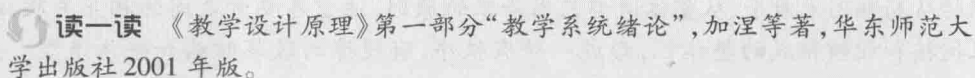 读一读 《教学设计原理》第一部分“教学系统绪论”,加涅等著,华东师范大
学出版社 2001 年版。